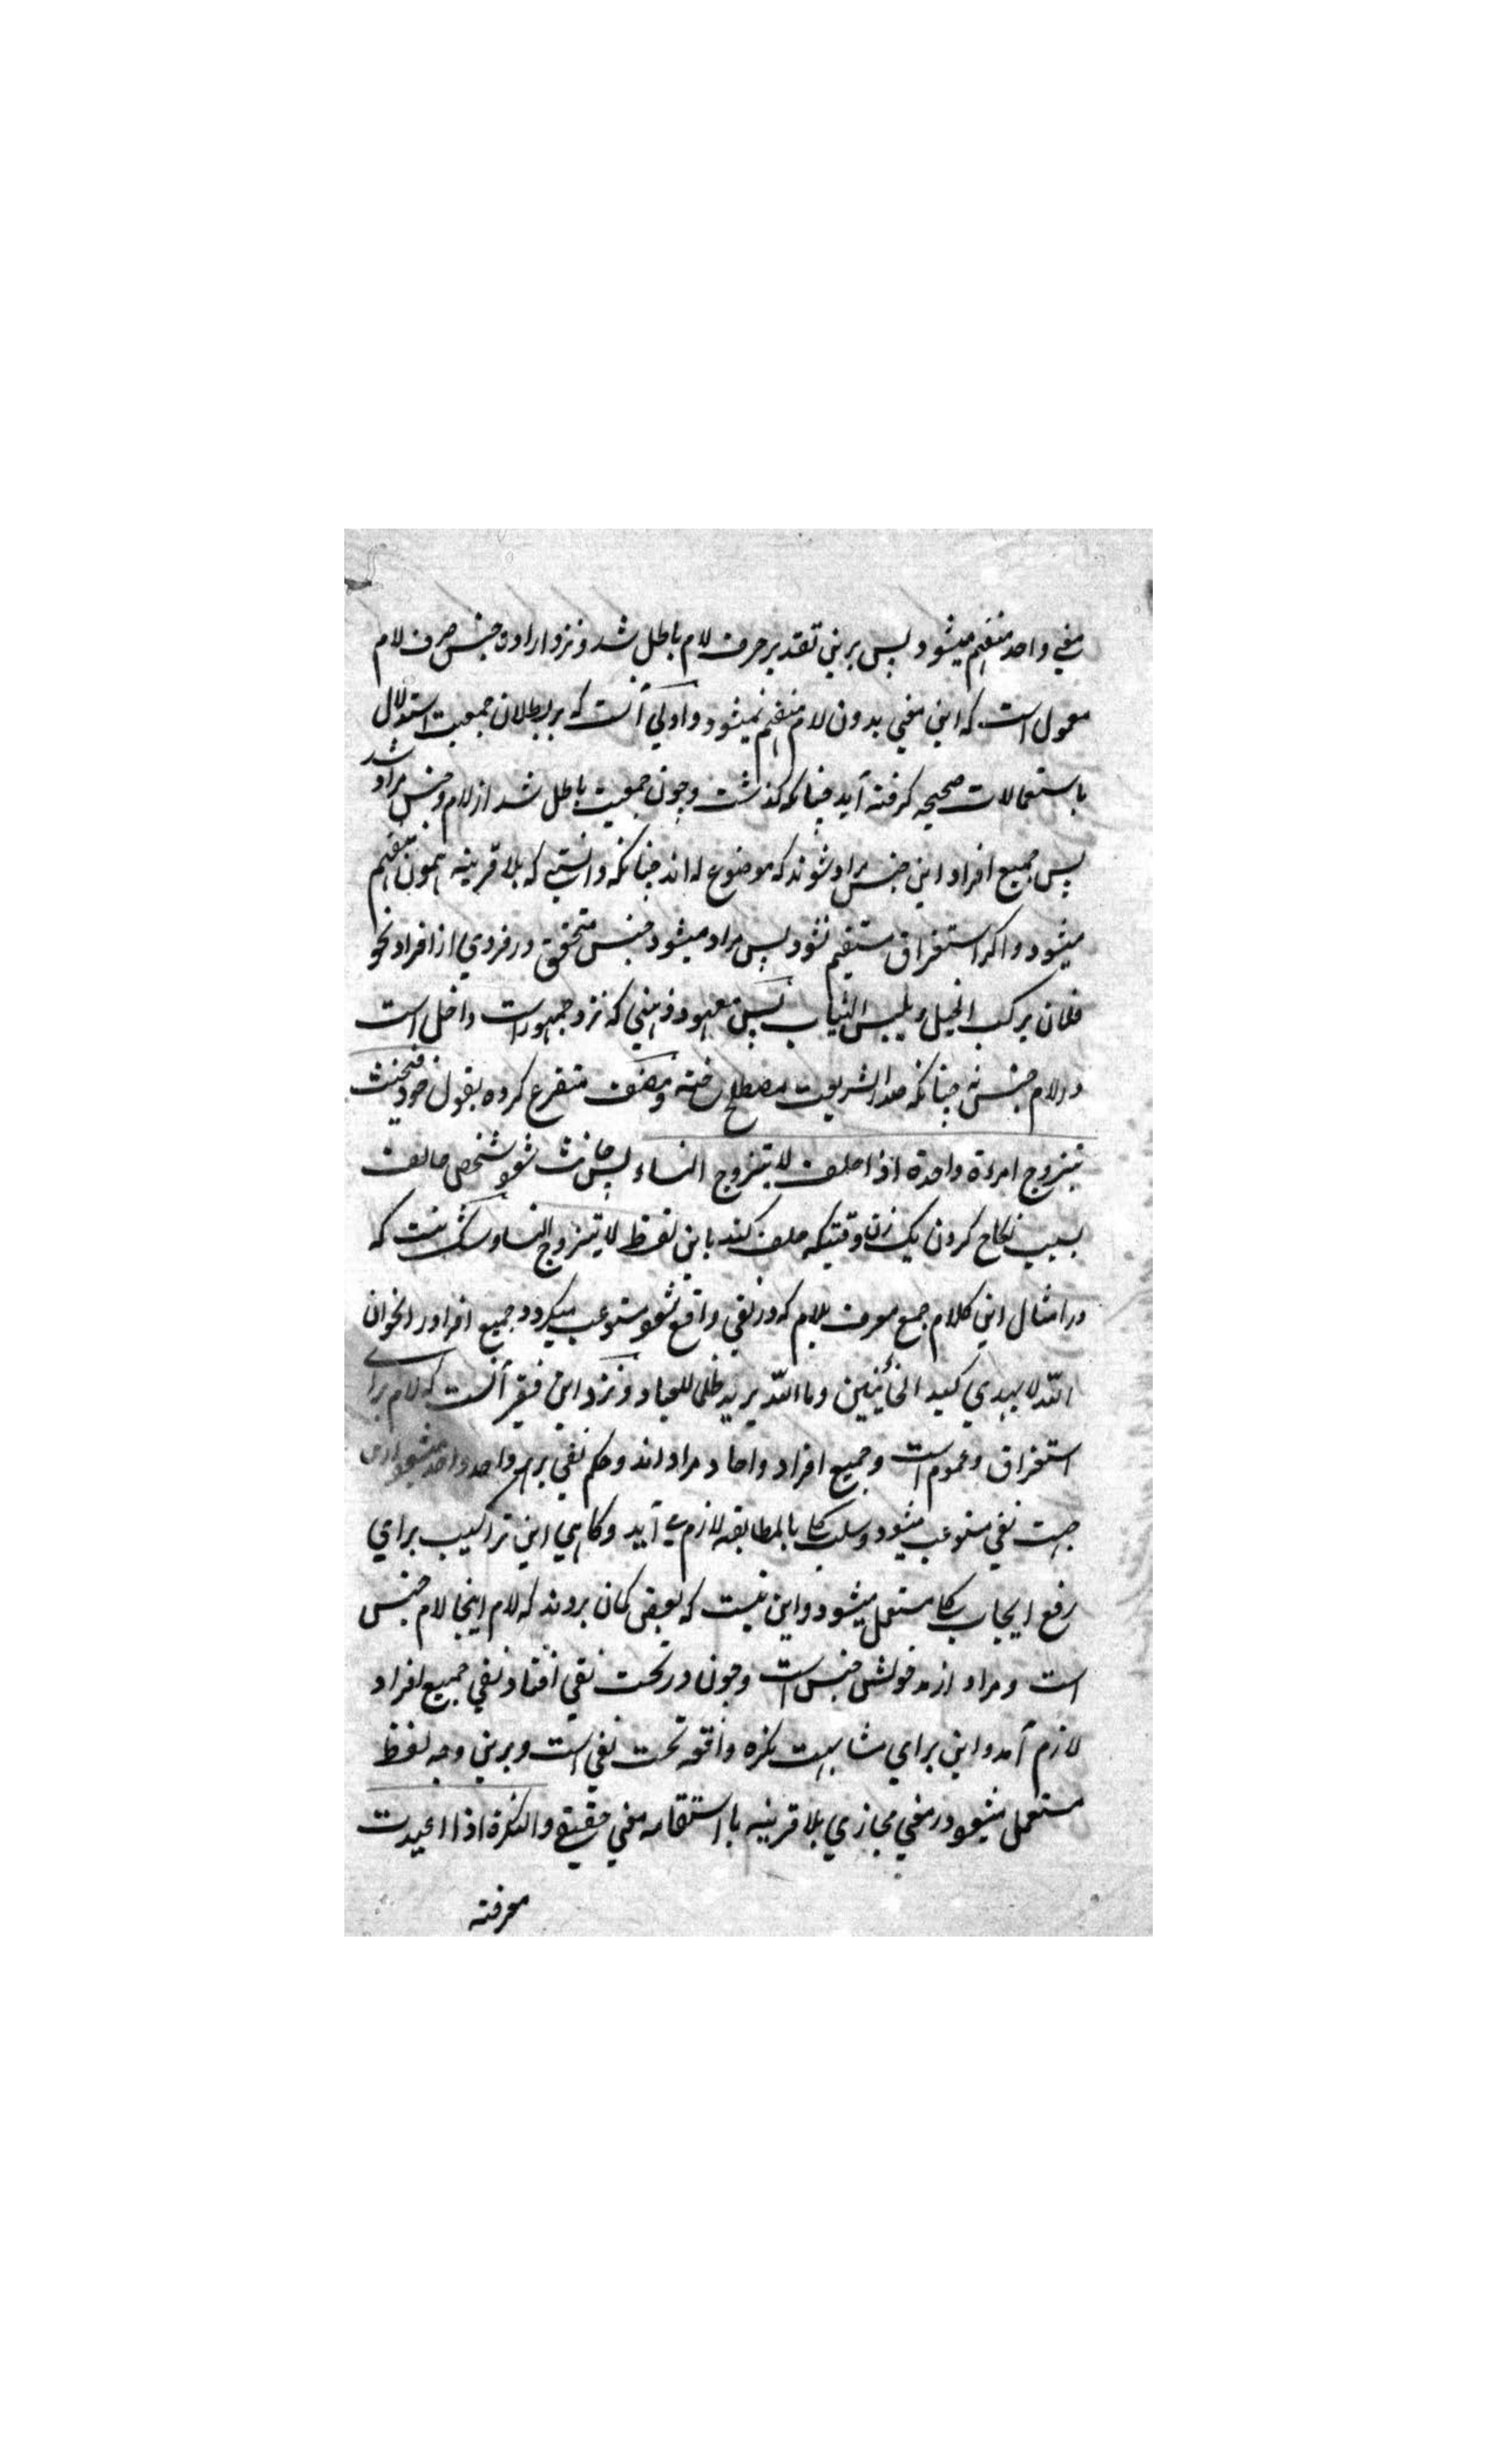 معني واحد منفهم ميشود پس برين تقدير حرف لام باطل شد و نزد اراده جنس حرف لام
معمول است که اين معني بدون لام منفهم نميشود و اولي آنست که بر بطلان جمعيت استدلال
باستعمالات صحيحه کرفته آيد چنانکه کذشت و چون جمعيت باطل شد از لام و جنس مراد شد
پس جميع افراد اين جنس مراد شوند که موضوع له اند چنانکه دانستي که بلا قرينه همون منفهم
ميشود و اکر استغراق مستقيم نشود پس مراد ميشود جنس متحقق در فردي از افراد نحو
فلان يرکب الخيل و يلبس الثياب پس معهود ذهني که نزد جمهور است داخل است
در لام جنس نه چنانکه صدر الشريعت مصطلح ساخته و مصنف متفرع کرده بقول خود فيحنث
بتزوج امراة واحدة اذا حلف لا يتزوج النساء پس حانث شود شخص حالف
بسبب نکاح کردن يک زن وقتيکه حلف کند باين لفظ لا يتزوج النساء و شک نيست که
در امثال اين کلام جمع معرف بلام که در نفي واقع شود مستوعب ميکردد جميع افراد را نحو ان
الله لا يهدي کيد الخائنين وما الله يريد ظلما للعباد و نزد اين فقير آنست که لام براي
استغراق و عموم است و جميع افراد و احاد مراد اند و حکم نفي بر هر واحد واحد ميشود ازين
جهت نفي مستوعب ميشود و سلب کلي بالمطابقه لازم مي آيد و کاهي اين تراکيب براي
رفع ايجاب کلي مستعمل ميشود و اين نيست که بعضي کمان بردند که لام اينجا لام جنس
است و مراد از مدخولش جنس است و چون در تحت نفي افتاد نفي جميع افراد
لازم آمد و اين براي مشابهت نکره واقعه تحت نفي است و برين وجه لفظ
مستعمل ميشود در معني مجازي بلا قرينه با استقامه معني حقيقي والنکرة اذا اعيدت
معرفته